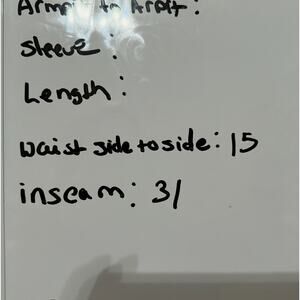 Armpit to Arpit:
Sleeve:
Length:
Waist side to side: 15
inseam: 31